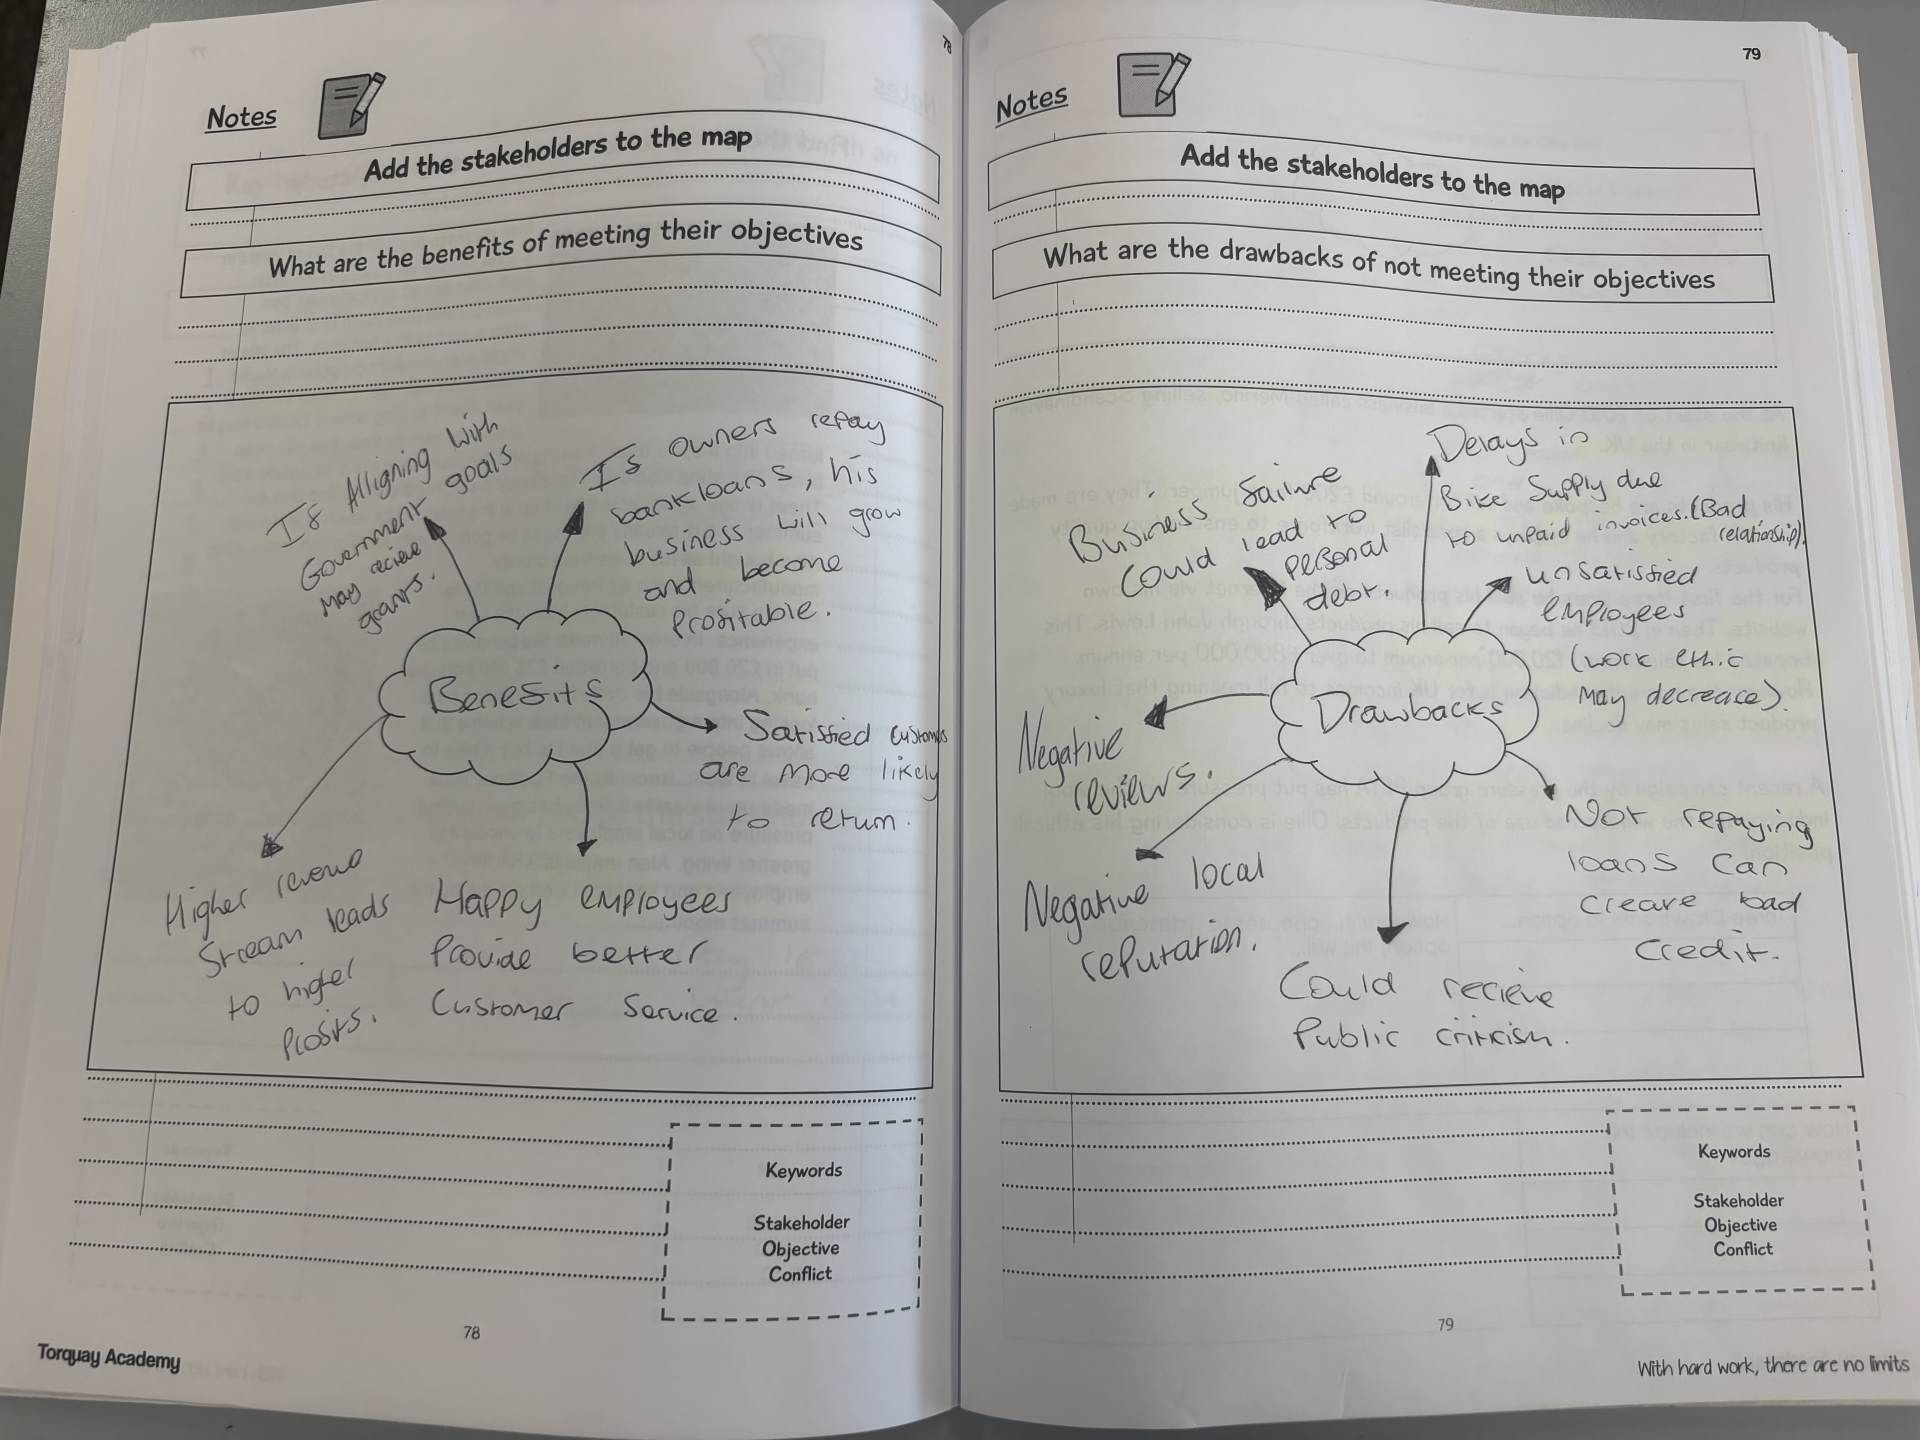 78
Notes
Add the stakeholders to the map
What are the benefits of meeting their objectives
If Alligning with
Government goals
may recieve
grants.
If owners repay
bankloans, his
business will grow
and become
Profitable.
Benefits
Satisfied customers
are more likely
to return.
Higher revenue
Stream leads
to higher
Profits.
Happy employees
Provide better
Customer Service.
Keywords
Stakeholder
Objective
Conflict
78
Torquay Academy
79
Notes
Add the stakeholders to the map
What are the drawbacks of not meeting their objectives
Business failure
Could lead to
personal
debt.
Delays in
Bike Supply due
to unpaid invoices.(Bad
relationship).
unsatisfied
employees
(work ethic
may decrease).
Drawbacks
Negative
reviews.
Negative local
reputation.
Could recieve
Public criticism.
Not repaying
loans can
create bad
credit.
Keywords
Stakeholder
Objective
Conflict
79
With hard work, there are no limits